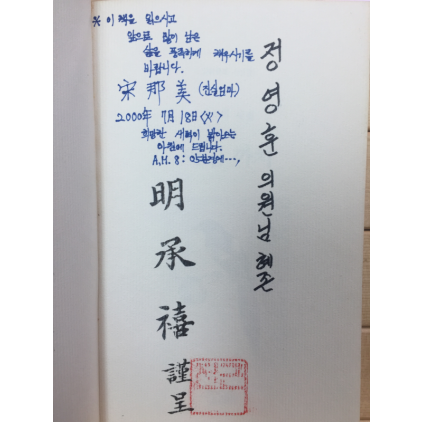 ※ 이 책을 읽으시고
앞으로 많이 남은
삶을 풍족하게 채우시기를
바랍니다.
宋那美 (진실엄마)
2000年 7月 18日 <火>
희망찬 새벽이 밝아오는
아침에 드립니다.
A.M. 8:
정영훈 의원님 혜존
明承禧 謹呈